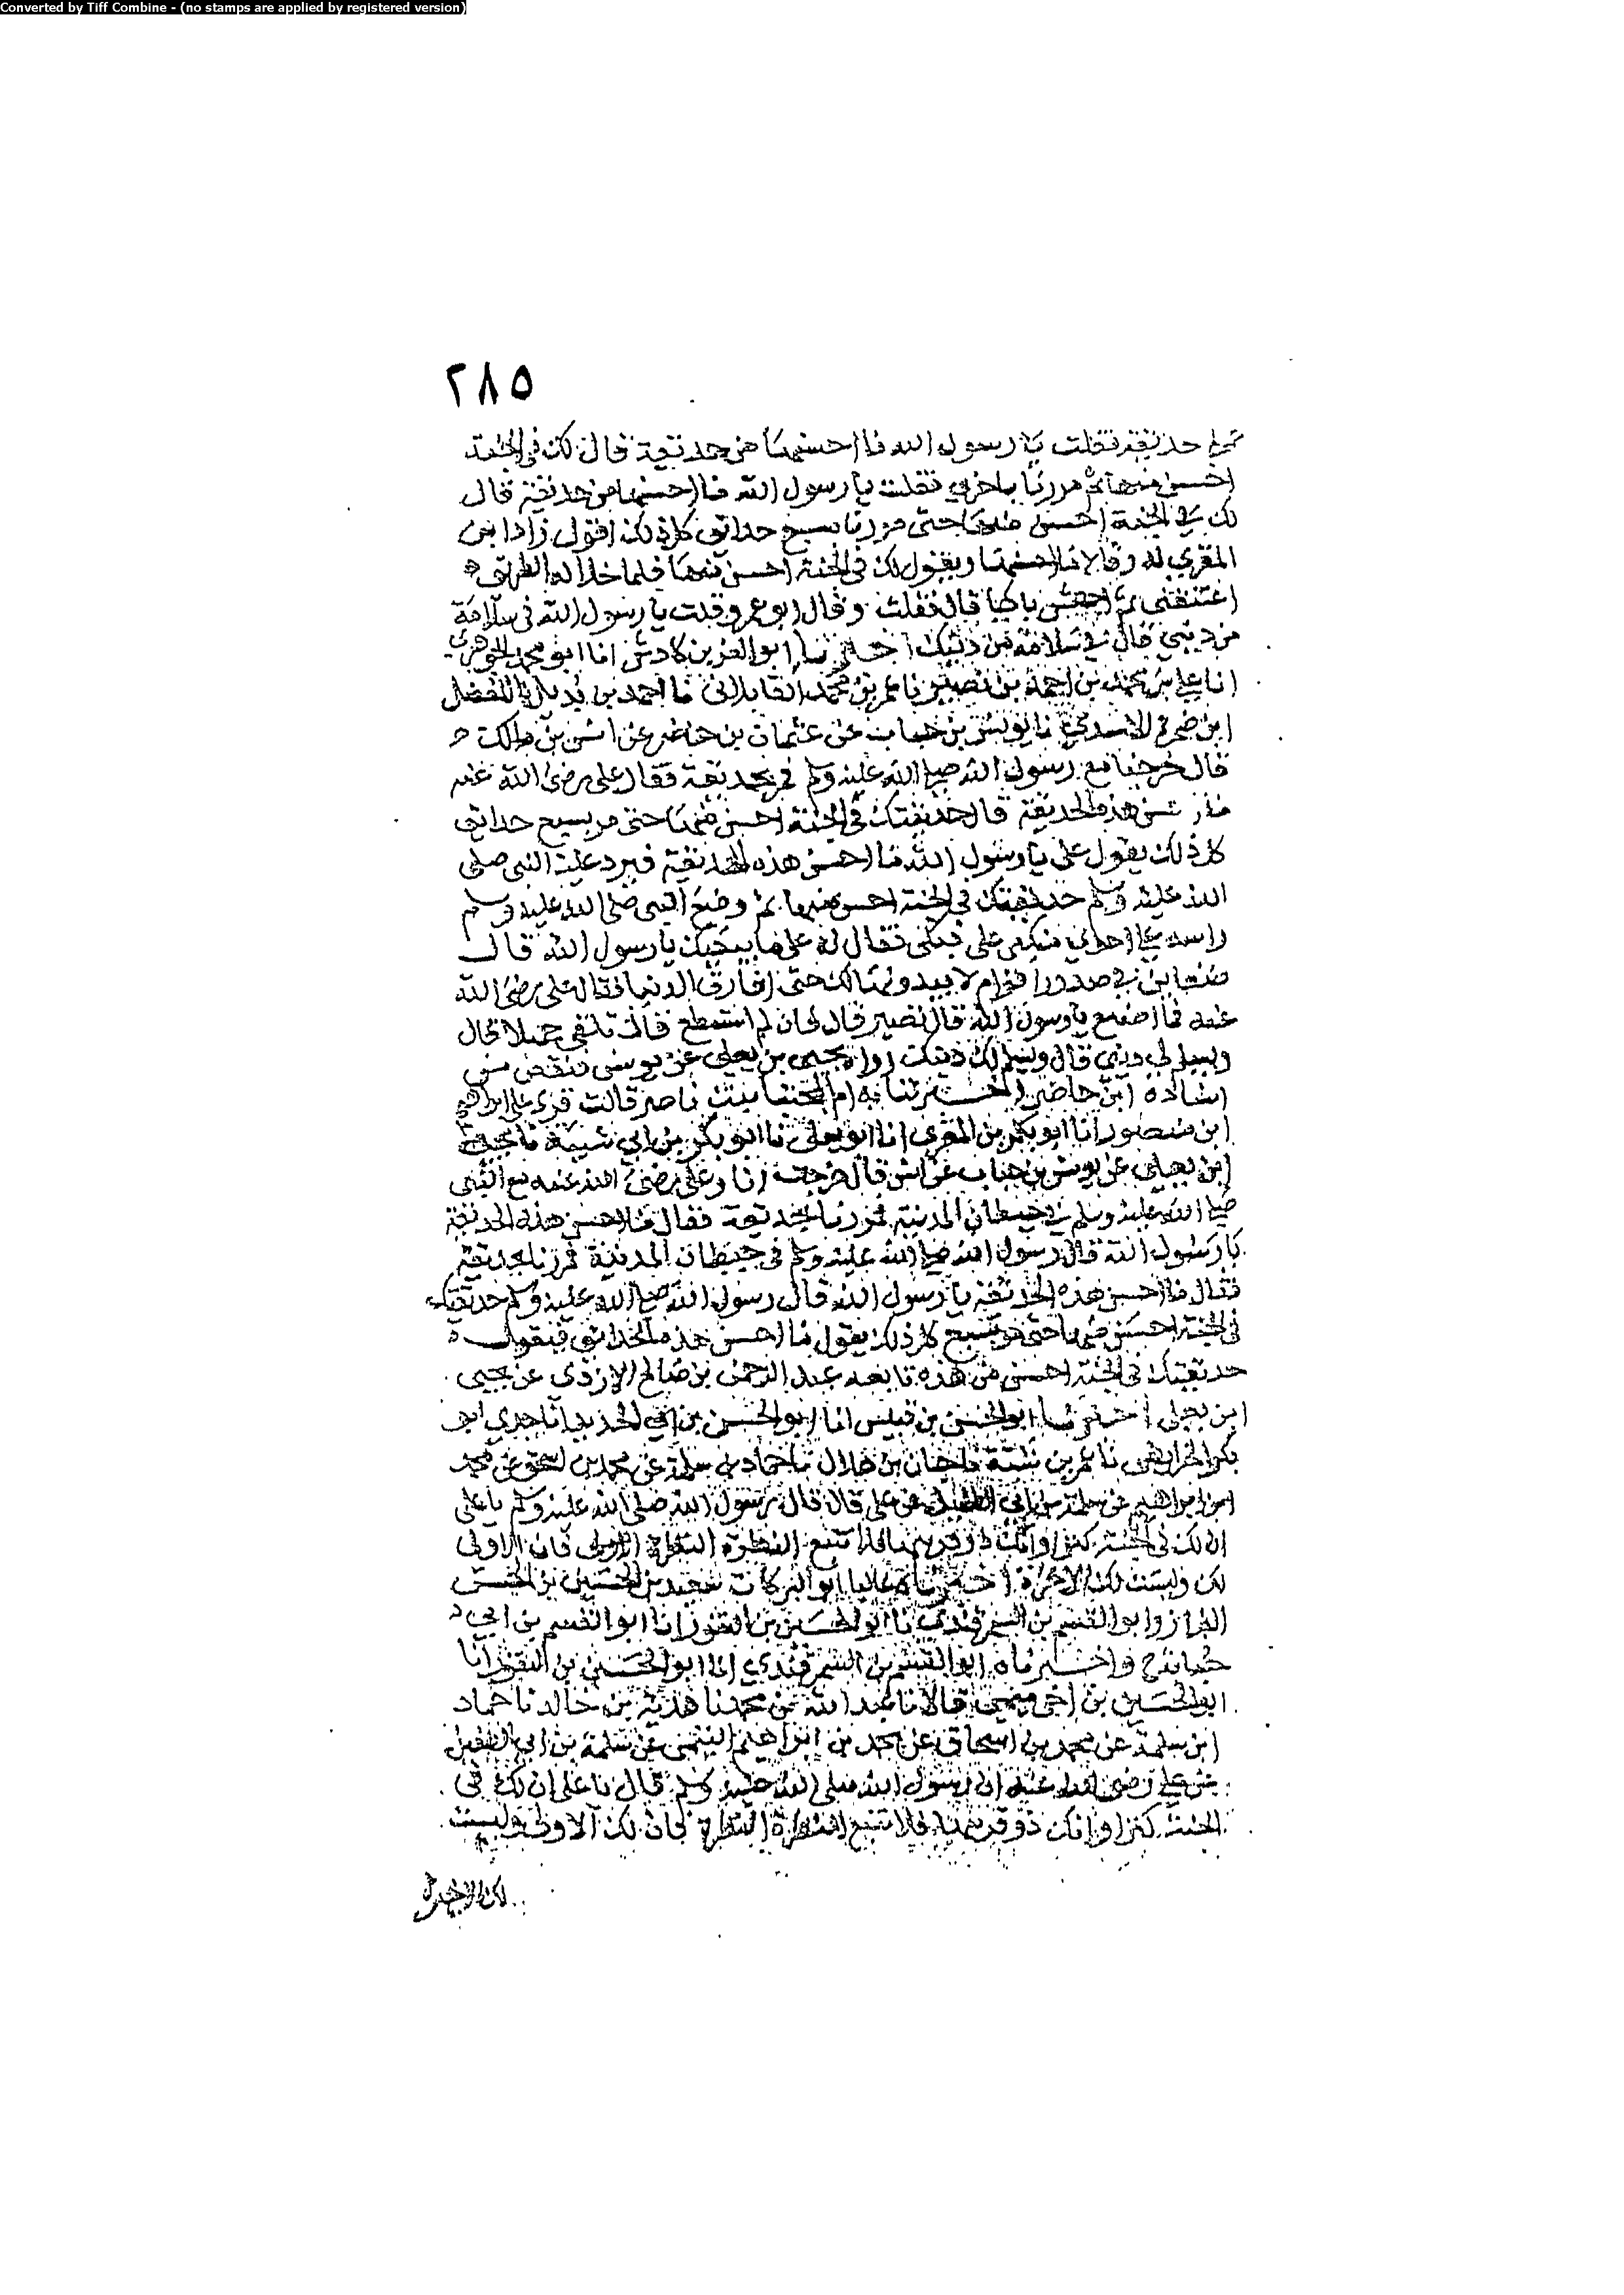 Converted by Tiff Combine - (no stamps are applied by registered version)
٢٨٥
حديقة فقلت يا رسول الله ما احسنها من حديقة قال لك في الجنة
احسن منها ثم مررنا باخرى فقلت يا رسول الله ما احسنها من حديقة قال
لك في الجنة احسن منها حتى مررنا بسبع حدائق كل ذلك اقول زاد ابن
المقرى له وقالا ما احسنها ويقول لك في الجنة احسن منها فلما خلا له الطريق
اعتنقني ثم اجهش باكيا قال فقلت وقال ابو عمرو قلت يا رسول الله في سلامة
من ديني قال في سلامة من دينك اخبرنا ابو العز بن كادش انا ابو محمد الجوهري
انا علي بن محمد بن احمد بن نصير نا عمر بن محمد القافلاني نا احمد بن بديل نا المفضل
الاسدي نا يونس بن خباب عن عثمان بن حاضر عن انس بن مالك
قال خرجنا مع رسول الله صلى الله عليه وسلم فمر بحديقة فقال علي رضي الله عنه
هذه الحديقة قال حديقتك في الجنة احسن منها حتى مر بسبع حدائق
كل ذلك يقول علي يا رسول الله ما احسن هذه الحديقة فيرد عليه النبي صلى
الله عليه وسلم حديقتك في الجنة احسن منها ثم وضع النبي صلى الله عليه وسلم
راسه على احدى منكبي علي فبكى فقال له علي ما يبكيك يا رسول الله قال
ضغائن في صدور اقوام لا يبدونها لك حتى افارق الدنيا فقال علي رضي الله
عنه فما اصنع يا رسول الله قال تصبر قال فان لم استطع قال تلقى جميلا قال
ويسلم لي ديني قال ويسلم لك دينك رواه يحيى بن يعلى عن يونس فنقص من
اسناده ابن حاضر اخبرتنا به ام المجتبا بنت ناصر قالت قرئ على ابراهيم
ابن منصور انا ابو بكر بن المقرى انا ابو يعلى نا ابو بكر بن ابي شيبة نا يحيى
ابن يعلى عن يونس بن خباب عن انس قال خرجت انا وعلي رضي الله عنه مع النبي
صلى الله عليه وسلم في حيطان المدينة فمررنا بحديقة فقال ما احسن هذه الحديقة
يا رسول الله قال رسول الله صلى الله عليه وسلم في حيطان المدينة فمررنا بحديقة
فقال ما احسن هذه الحديقة يا رسول الله قال رسول الله صلى الله عليه وسلم حديقتك
في الجنة احسن منها حتى مر بسبع كل ذلك يقول ما احسن هذه الحدائق فيقول
حديقتك في الجنة احسن من هذه تابعه عبد الرحمن بن صالح الازدي عن يحيى
ابن يعلى اخبرنا ابو الحسن بن قبيس انا ابو الحسن بن ابي الحديد انا جدي ابو
بكر الخرائطي نا عمر بن شبة نا حبان بن هلال نا حماد بن سلمة عن محمد بن اسحق عن محمد
ابن ابراهيم عن سلمة بن ابي الطفيل عن علي قال قال رسول الله صلى الله عليه وسلم يا علي
ان لك في الجنة كنزا وانك ذو قرنيها فلا تتبع النظرة النظرة فان الاولى
لك وليست لك الاخرة اخبرناه عاليا ابو البركات سعيد بن الحسين بن الحسن
البزاز وابو القسم بن السمرقندي نا ابو الحسين بن النقور انا ابو القسم بن ابي
حبابة ح واخبرناه ابو القسم بن السمرقندي انا ابو الحسين بن النقور انا
ابو الحسين بن اخي ميمي قالا نا عبد الله بن محمد نا هدبة بن خالد نا حماد
ابن سلمة عن محمد بن اسحاق عن محمد بن ابراهيم التيمي عن سلمة بن ابي الطفيل
عن علي رضي الله عنه ان رسول الله صلى الله عليه وسلم قال يا علي ان لك في
الجنة كنزا وانك ذو قرنيها فلا تتبع النظرة النظرة فان لك الاولى وليست
لك الاخرة